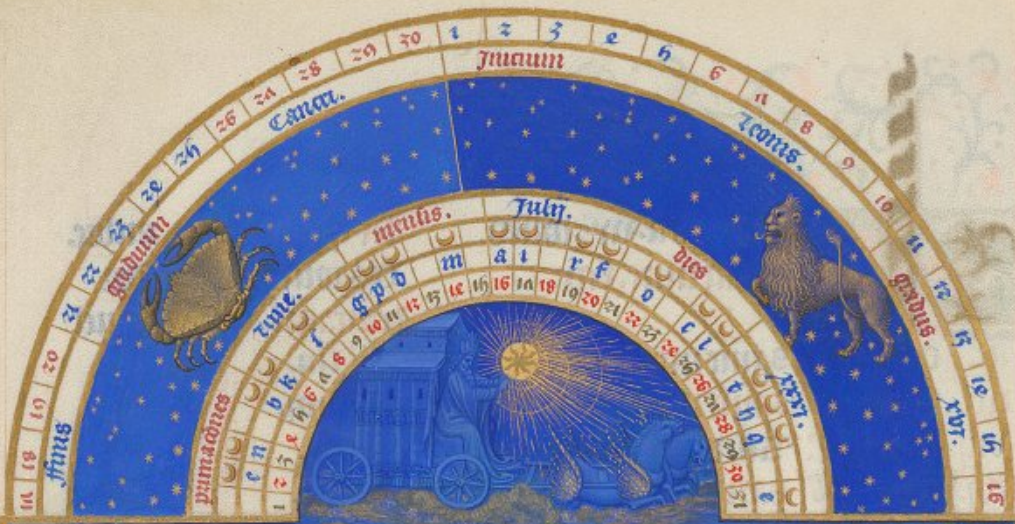 17 18 19 20 21 22 23 24 25 26 27 28 29 30 1 2 3 4 5 6 7 8 9 10 11 12 13 14 15 16
ffinis graduum Cancri. Inicium leonis. gradus. xvi.
primaciones lune. mensis. July. dies xxxi.
e n b k s g p d m a i r f o c l t h q e
1 2 3 4 5 6 7 8 9 10 11 12 13 14 15 16 17 18 19 20 21 22 23 24 25 26 27 28 29 30 31